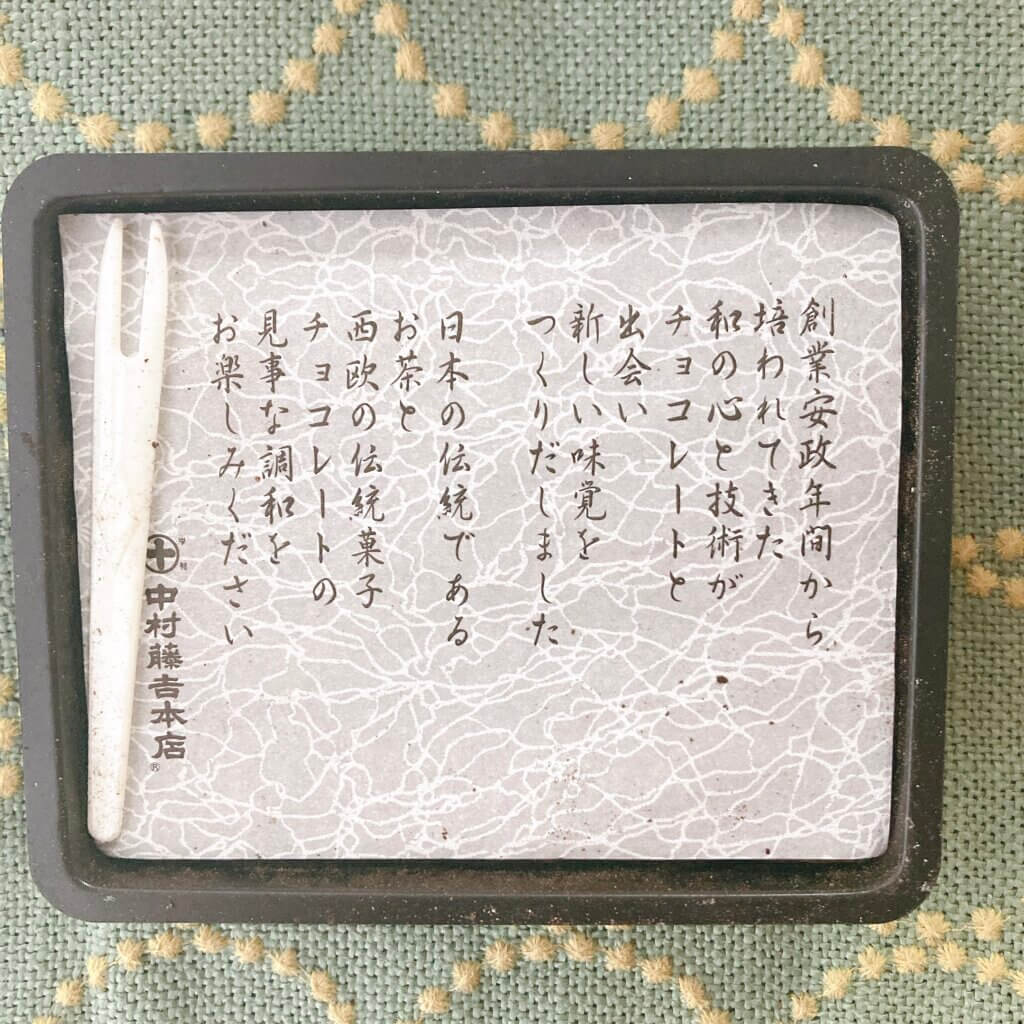 創業安政年間から
培われてきた
和の心と技術が
チョコレートと
出会い
新しい味覚を
つくりだしました
日本の伝統である
お茶と
西欧の伝統菓子
チョコレートの
見事な調和を
お楽しみください
中村藤吉本店
®